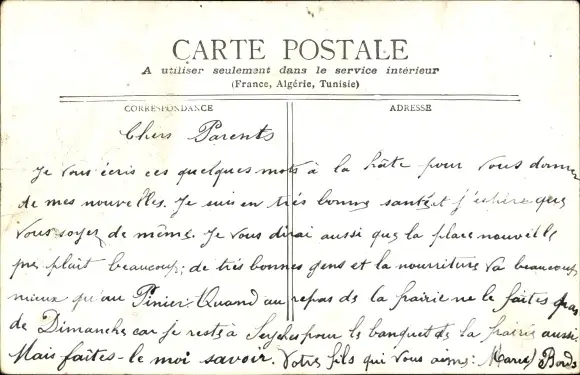 CARTE POSTALE
A utiliser seulement dans le service intérieur
(France, Algérie, Tunisie)
CORRESPONDANCE
ADRESSE
Chers Parents
Je vous écris ces quelques mots à la hâte pour vous donner
de mes nouvelles. Je suis en très bonne santé et j'espère que
vous soyez de même. Je vous dirai aussi que la place nouvelle
me plait beaucoup; de très bonnes gens et la nourriture va beaucoup
mieux qu'au Pinier. Quand au repas de la frairie ne le faites pas
de Dimanche car je reste à pour le banquet de la frairie aussi.
Mais faites-le moi savoir. Votre fils qui vous aime: Marcel